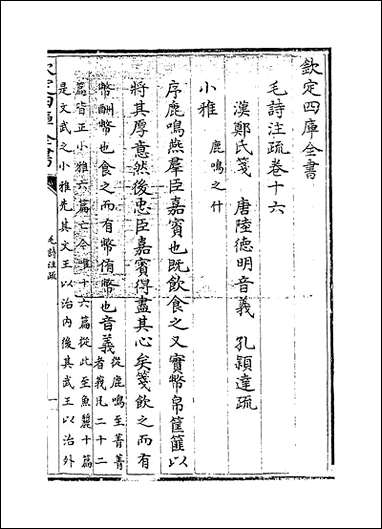 欽定四庫全書
毛詩注疏卷十六
漢鄭氏箋　唐陸德明音義　孔穎達疏
小雅　鹿鳴之什
序鹿鳴燕羣臣嘉賓也既飲食之又實幣帛筐篚以
將其厚意然後忠臣嘉賓得盡其心矣箋飲之而有
幣酬幣也食之而有幣侑幣也音義從鹿鳴至菁菁
者莪凡二十二
篇皆正小雅六篇亡今唯十六篇從此至魚麗十篇
是文武之小雅先其文王以治内後其武王以治外
毛詩注疏
一